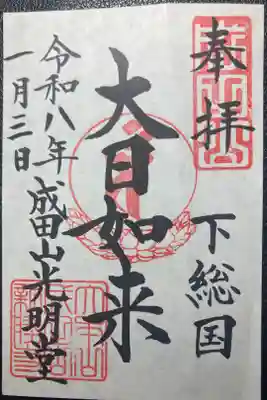 奉拝
下総国
大日如来
成田山光明堂
令和八年
一月三日